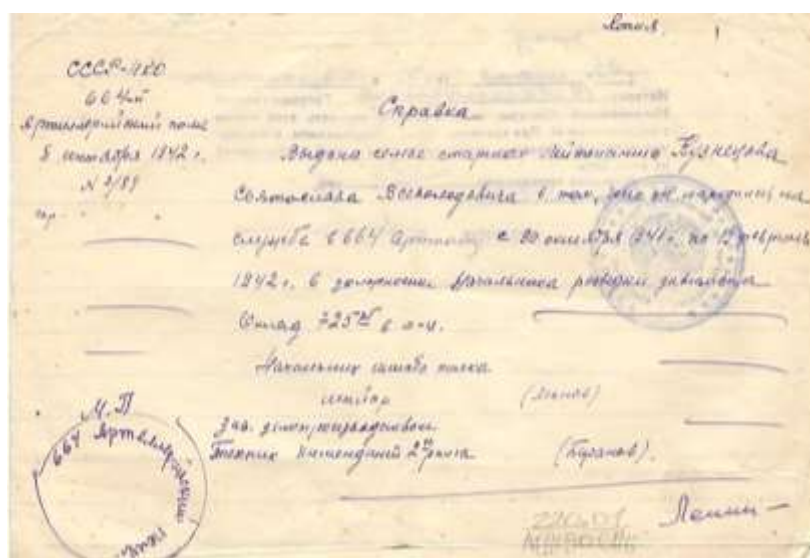 Копия
СССР-НКО
664-й
Артиллерийский полк
8 сентября 1942 г.
N 2/89
гор.
Справка
Выдана семье старшего лейтенанта Кузнецова
Святослава Всеволодовича в том, что он находился на
службе в 664 Артполку с 20 октября 1941 г. по 12 февраля
1942 г. в должности Начальника разведки дивизиона
Оклад 725 в м-ц.
Начальник штаба полка
майор
Зав. делопроизводством
Техник Интендант 2 ранга (Буранов).
М.П
664 Артиллерийский полк